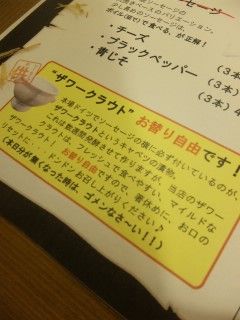 少し長めのソーセージ。
ボイル(茹で)で食べる、が正解!
・チーズ
・ブラックペッパー (3本)
・青じそ (3本)
(3本)4
"ザワークラウト" お替り自由です!
本場ドイツでソーセージの横に必ず付いているのが、
ザワークラウトというキャベツの漬物。
これは数週間発酵させて作りますが、当店のザワー
クラウトは、フレッシュで食べやすい、マイルドな
お替り自由ですので、箸休めに、お口の
リセットに・・ドンドンお召し上がりください♪
(本日分が無くなった時は、ゴメンなさ~い!!)